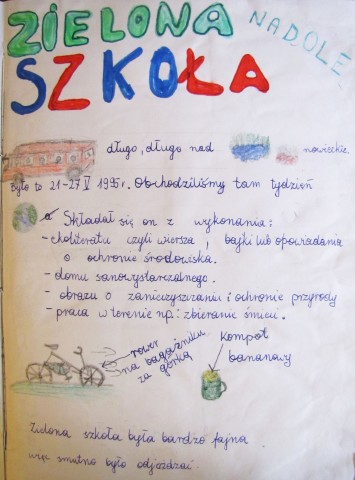 ZIELONA NADOLE
SZKOŁA
długo, długo nad nowickie.
Było to 21-27 V 1995r. Obchodziliśmy tam tydzień
Składał się on z wykonania:
- choliteratu czyli wiersza, bajki lub opowiadania
o ochronie środowiska.
- domu samowystarczalnego.
- obrazu o zanieczyszczaniu i ochronie przyrody
- praca w terenie np: zbieranie śmieci.
rower
na bagażniku
za górką
kompot
bananowy
Zielona szkoła była bardzo fajna
więc smutno było odjeżdżać.